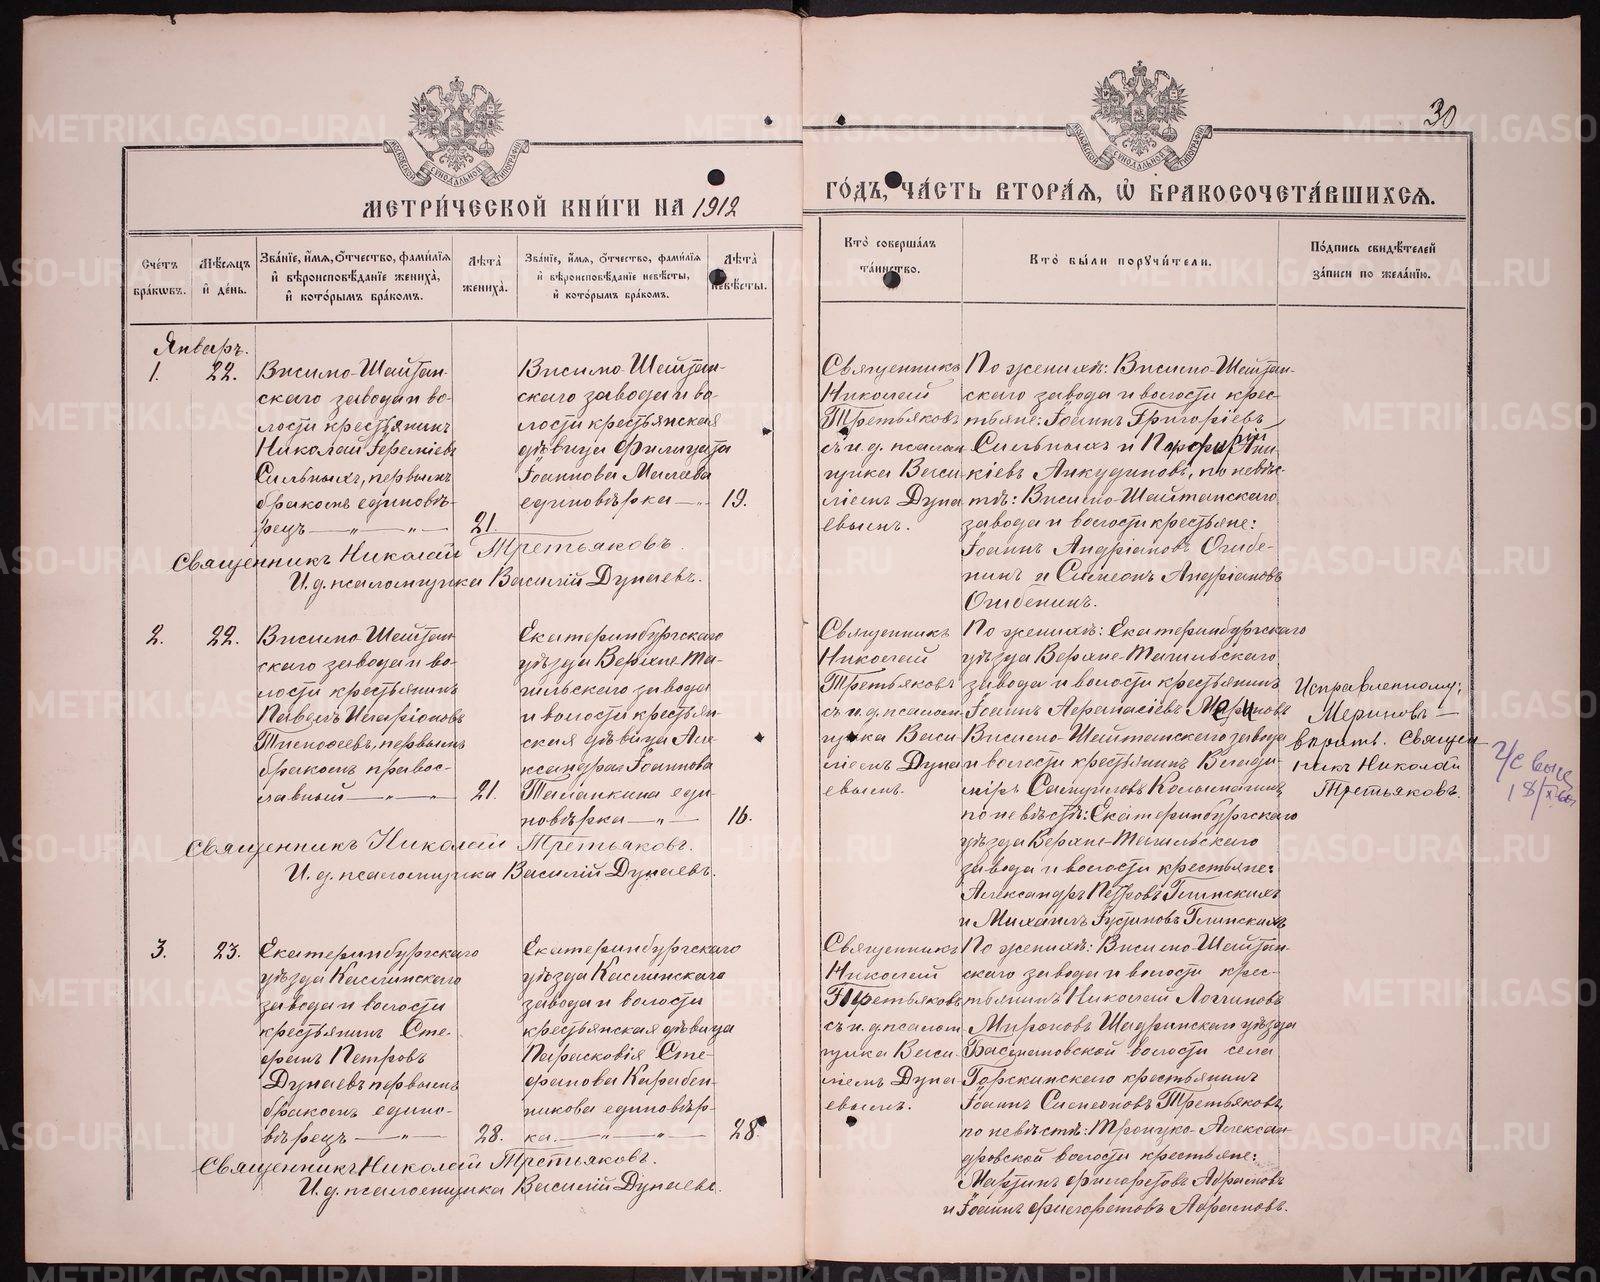 30
МЕТРИ́ЧЕСКОЙ КНИ́ГИ НА 1912
ГО́ДЪ, ЧА́СТЬ ВТОРА́Я, Ѡ БРАКОСОЧЕТА́ВШИХСЯ.
Сче́тъ бра́кѡвъ.
Мѣ́сяцъ и҆ де́нь.
Зва́нїе, и҆́мя, ѻ҆́тчество, фами́лїя
и҆ вѣроисповѣ́данїе жениха̀,
и҆ кото́рымъ бра́комъ.
Лѣ́та жениха̀.
Зва́нїе, и҆́мя, ѻ҆́тчество, фами́лїя
и҆ вѣроисповѣ́данїе невѣ́сты,
и҆ кото́рымъ бра́комъ.
Лѣ́та невѣ́сты.
Кто̀ соверша́лъ
та́инство.
Кто̀ бы́ли поручи́тели.
По́дпись свидѣ́телей
за́писи по жела́нїю.
Январь.
1.
22.
Висимо-Шайтан-
скаго завода и во-
лости крестьянинъ
Николай Іереміевъ
Сильныхъ, первымъ
бракомъ единовѣ-
рецъ — „ — „ —
21.
Висимо-Шайтан-
скаго завода и во-
лости крестьянская
дѣвица Филицата
Іоаннова Малаева
единовѣрка — „
19.
Священникъ
Николай
Третьяковъ
съ и. д. псалом
щика Васи
ліемъ Дуна
евымъ.
По женихѣ: Висимо-Шайтан-
скаго завода и волости крес-
тьяне: Іоаннъ Григоріевъ
Сильныхъ и Порфирій Іоан-
кіевъ Анкудиновъ, по невѣс-
тѣ: Висимо-Шайтанскаго
завода и волости крестьяне:
Іоаннъ Андріановъ Ошибе-
нинъ и Симеонъ Андріановъ
Ошибенинъ.
Священникъ Николай Третьяковъ.
И. д. псаломщика Василій Дунаевъ.
2.
22.
Висимо-Шайтан
скаго завода и во-
лости крестьянинъ
Павелъ Иларіоновъ
Тимофеевъ, первымъ
бракомъ правос-
лавный — „ — „ —
21.
Екатеринбургскаго
уѣзда Верхне-Та-
гильскаго завода
и волости крестьян-
ская дѣвица Але-
ксандра Іоаннова
Таланкина еди-
новѣрка — „ —
16.
Священникъ
Николай
Третьяковъ
съ и. д. псалом
щика Васи
ліемъ Дуна
евымъ.
По женихѣ: Екатеринбургскаго
уѣзда Верхне-Тагильскаго
завода и волости крестьянинъ
Іоаннъ Афанасіевъ Мериновъ
Висимо-Шайтанскаго завода
и волости крестьянинъ Влади-
міръ Самуиловъ Колымагинъ,
по невѣстѣ: Екатеринбургскаго
уѣзда Верхне-Тагильскаго
завода и волости крестьяне:
Александръ Петровъ Глинскихъ
и Михаилъ Іустиновъ Глинскихъ
Исправленному:
Мериновъ —
вѣрить. Священ
никъ Николай
Третьяковъ.
Священникъ Николай Третьяковъ.
И. д. псаломщика Василій Дунаевъ.
3.
23.
Екатеринбургскаго
уѣзда Каслинскаго
завода и волости
крестьянинъ Сте-
фанъ Петровъ
Дунаевъ первымъ
бракомъ едино-
вѣрецъ — „ —
28.
Екатеринбургскаго
уѣзда Каслинскаго
завода и волости
крестьянская дѣвица
Парасковія Сте-
фанова Карабен-
никова единовѣр-
ка. — „ — „ —
28.
Священникъ
Николай
Третьяковъ
съ и. д. псалом
щика Васи-
ліемъ Дуна
евымъ.
По женихѣ: Висимо-Шайтан-
скаго завода и волости крес-
тьянинъ Николай Логгиновъ
Мироновъ Шадринскаго уѣзда
Басмановской волости села
Горскинскаго крестьянинъ
Іоаннъ Симеоновъ Третьяковъ,
по невѣстѣ: Троицко-Алексан-
дровской волости крестьяне:
Мартинъ Филаретовъ Абрамовъ
и Іоаннъ Филаретовъ Абрамовъ.
Священникъ Николай Третьяковъ.
И. д. псаломщика Василій Дунаевъ.
METRIKI.GASO-URAL.RU